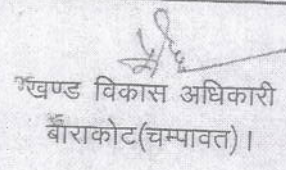 खण्ड विकास अधिकारी
बाराकोट(चम्पावत)।